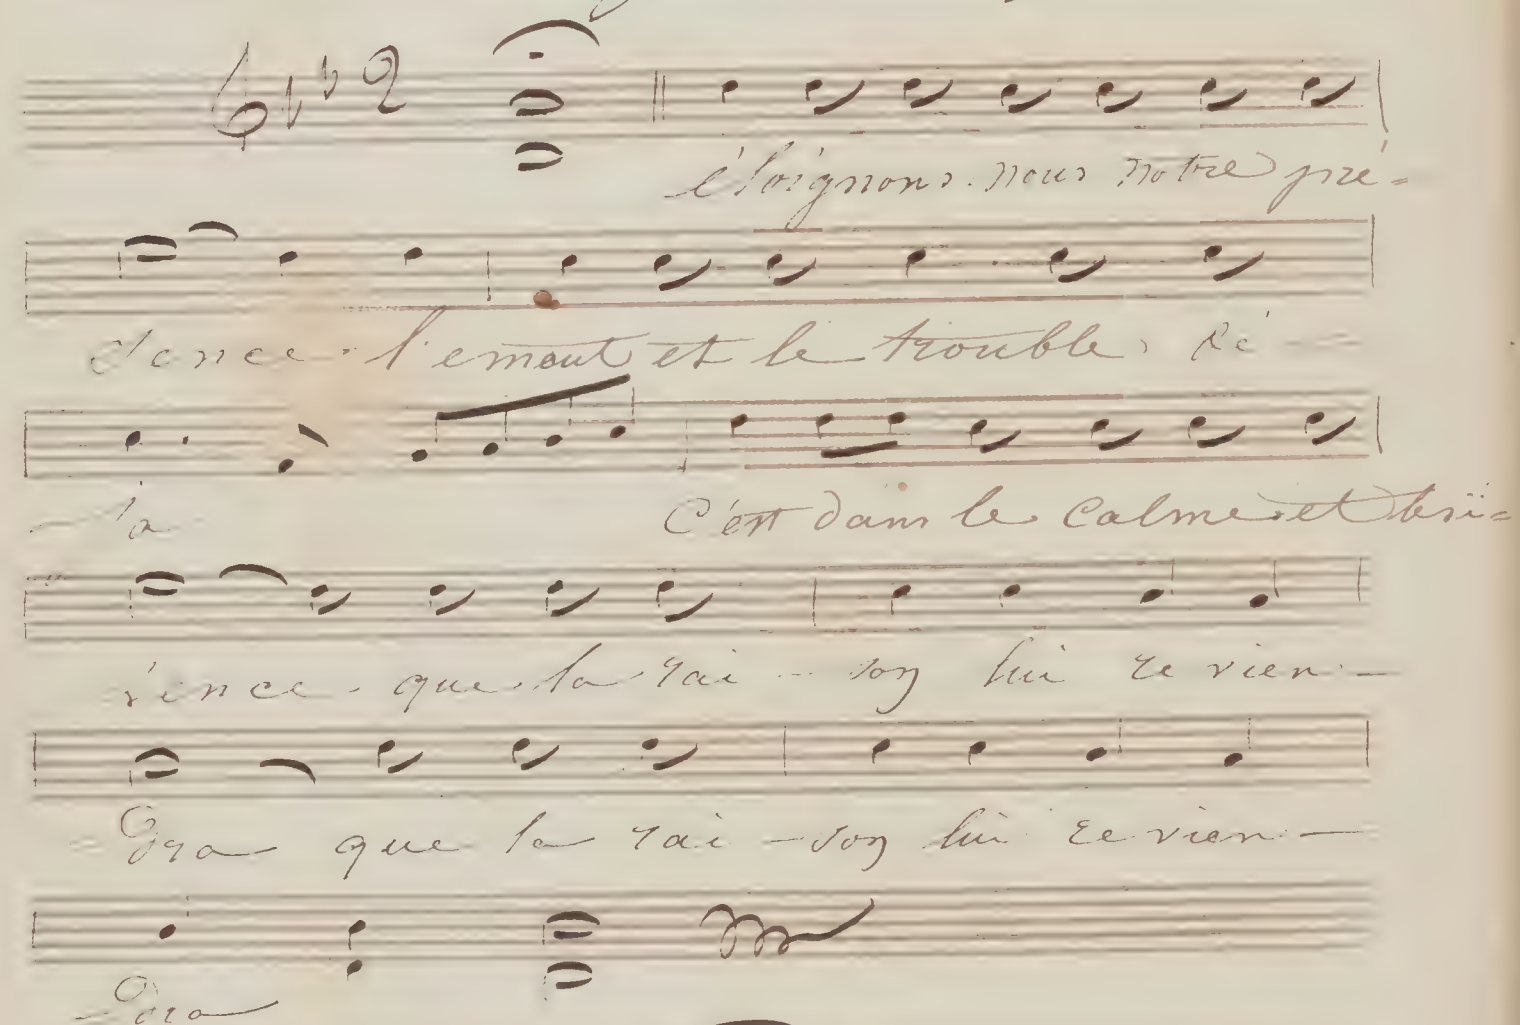 éloignons. nous notre pré-
sence. l'emeut et le trouble. Dé
- là
C'est dans le Calme et le si-
lence. que la rai - son lui revien -
Dra que la rai - son lui revien -
- Dra